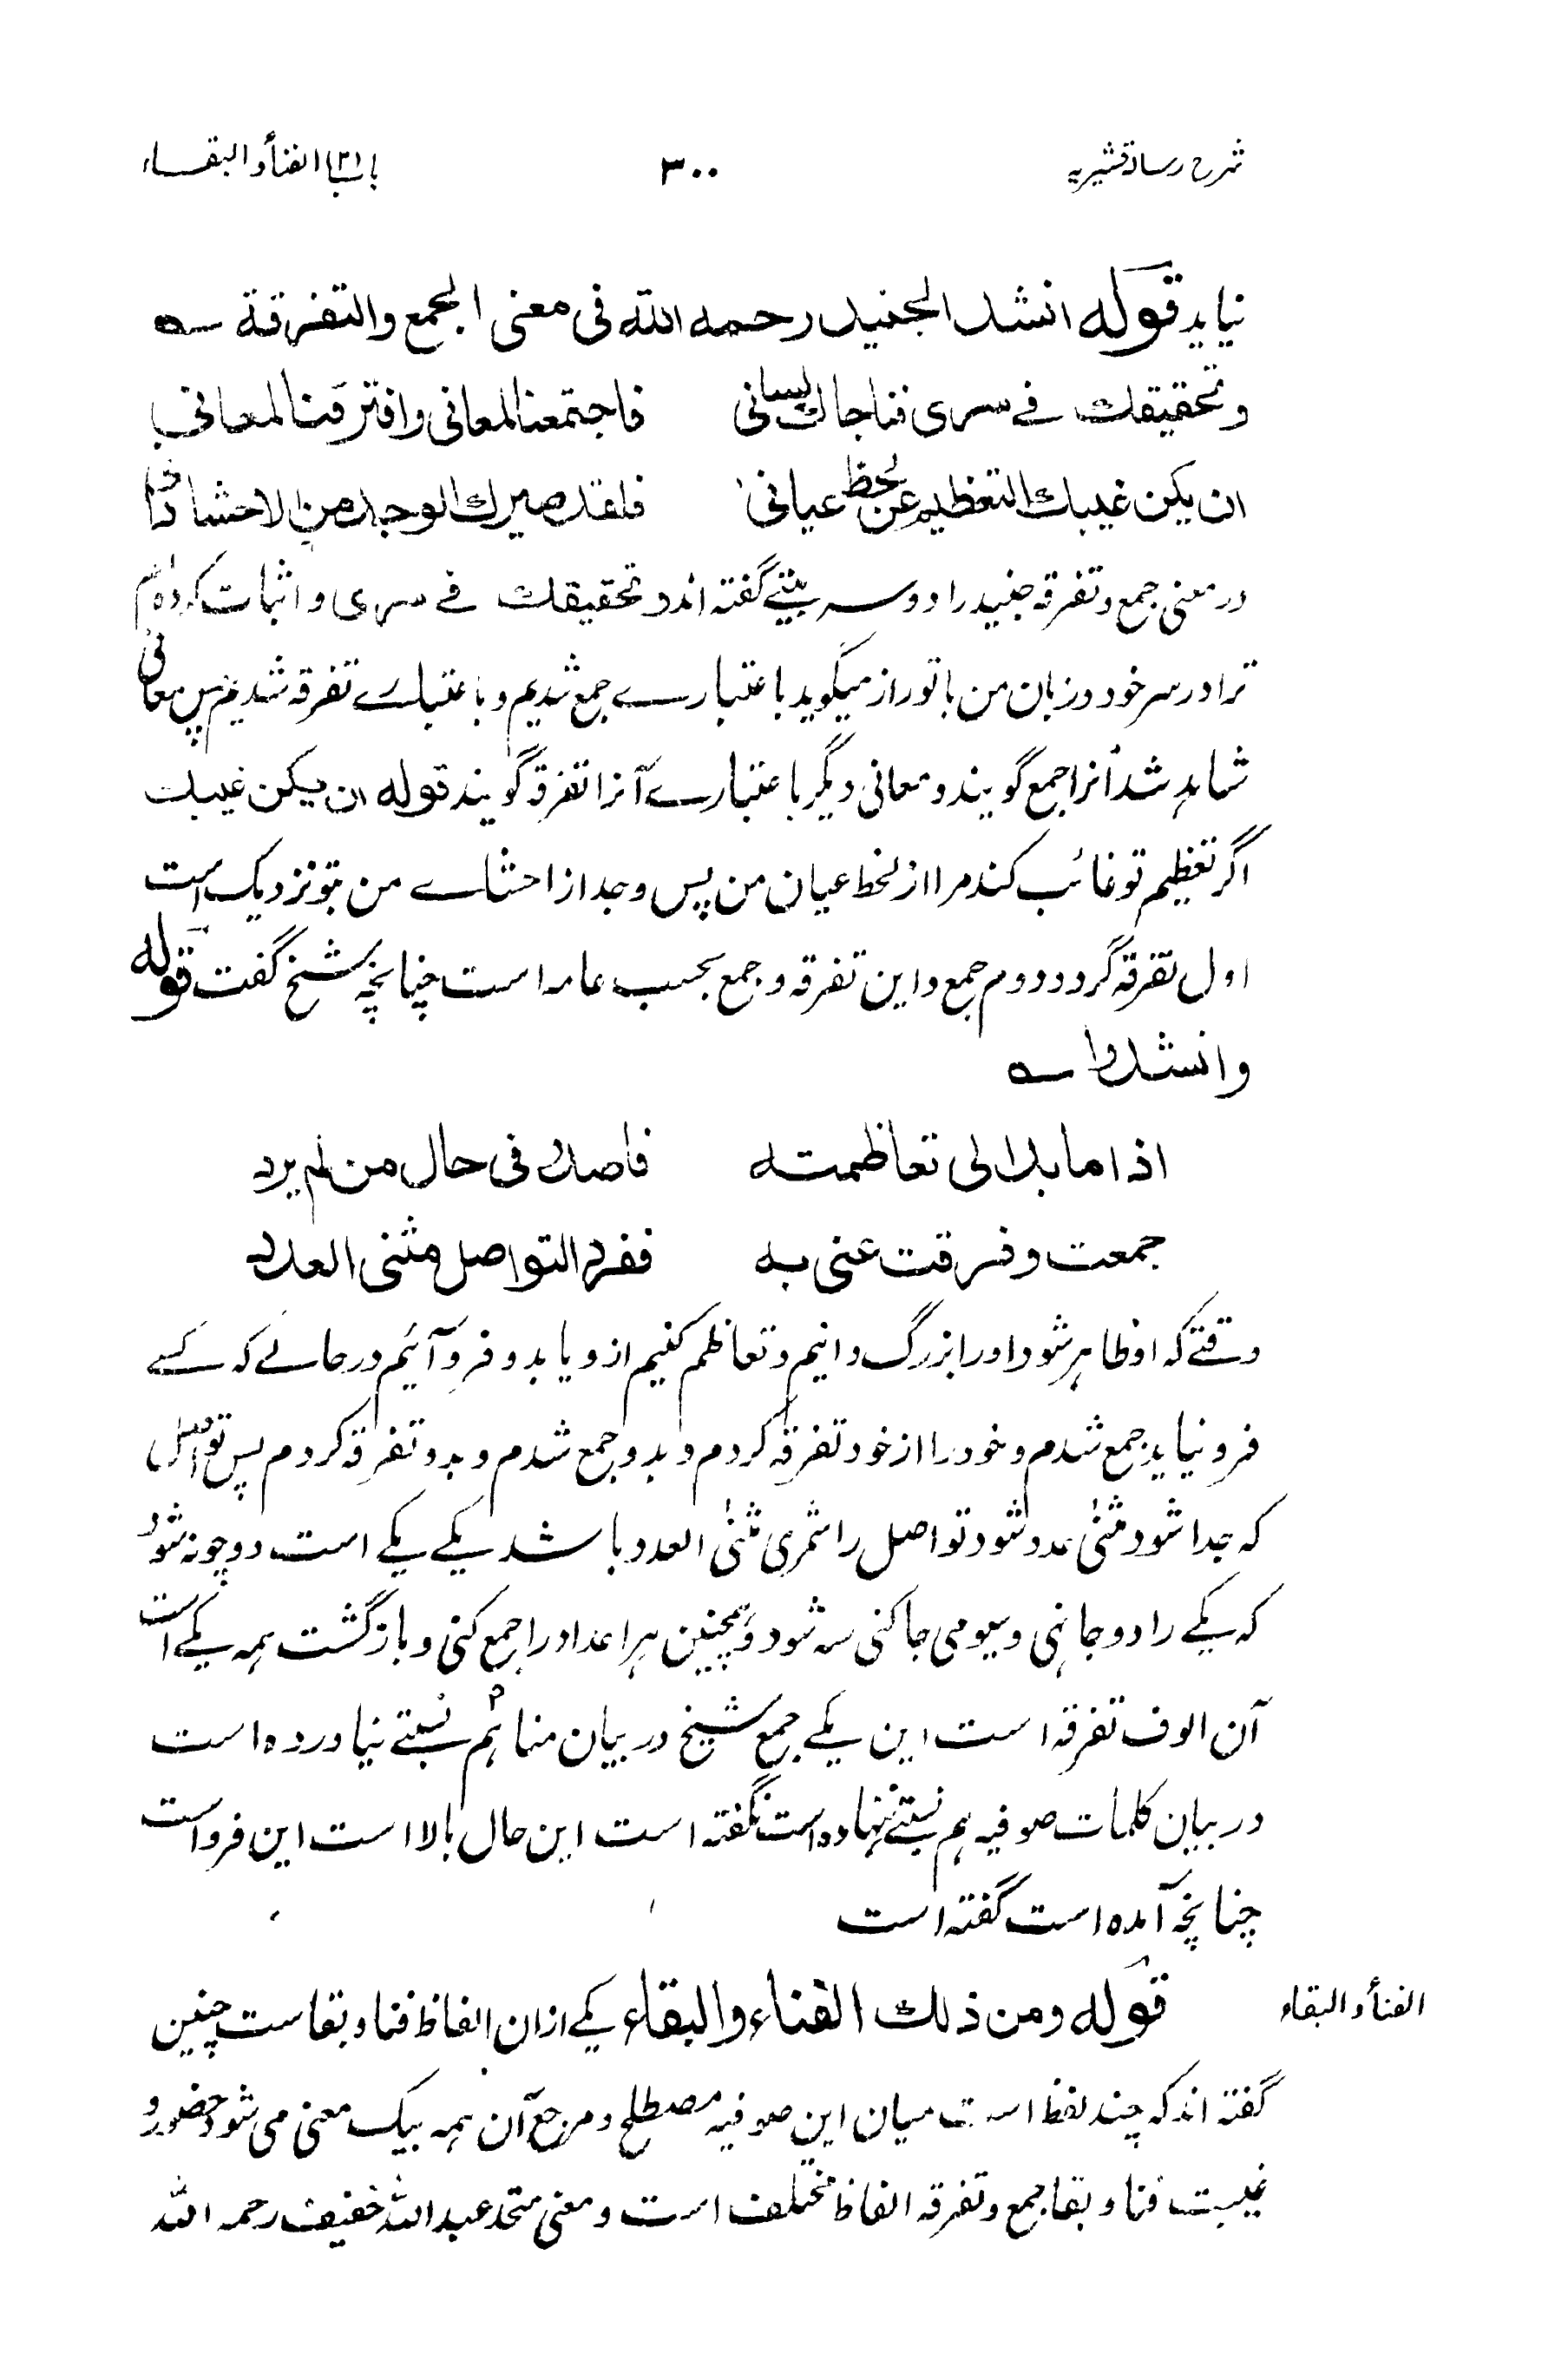 شرح رسالہ قشیریہ ۳۰۰ باب (۳۱) الفنأ و البقاء
نیاید قوله انشد الجنید رحمه الله فی معنی الجمع والتفرقة ؎
وتحقیقك فی سری فناجاك لسانی فاجتمعنا لمعانی وافترقنا لمعانی
ان یکن غیبك التعظیم عن لحظ عیانی فلقد صیرك الوجد من الاحشا دانا
در معنی جمع و تفرقہ جنید را دو سہ بیتے گفتہ اند و تحقیقك فی سری و اثبات کردہ ام
ترا در سر خود و زبان من با تو راز میگوید باعتبارے جمع شدیم و باعتبارے تفرقہ شدیم پس معانی
شاہد شد آنرا جمع گویند و معانی دیگر باعتبارے آنرا تفرقہ گویند قوله ان یکن غیبك
اگر تعظیم تو غائب کند مرا از لحظ عیان من پس وجد از احشاے من بتو نزدیک است
اول تفرقہ گردد دوم جمع و این تفرقہ و جمع بحسب عامہ است چنانچہ شیخ گفت قوله
وانشدوا ؎
اذا ما بدا لی تعاظمته فاصدر فی حال من لم یرد
جمعت وفرقت عنی به ففرد التواصل مثنی العدد
وقتے کہ او ظاہر شود اورا بزرگ دانیم و تعاظم کنیم ازو یا بدو فرو آئیم در حالے کہ کسے
فرو نیاید جمع شدم و خود را از خود تفرقہ کردم و بدو جمع شدم و بدو تفرقہ کردم پس تواصل
کہ جدا شود مثنیٰ عدد شود تواصل را شمری مثنیٰ العدد باشد یکے یکے است دو چونہ شود
کہ یکے را دو جا نہی و سیومی جا کنی سہ شود و ہمچنین ہر اعداد را جمع کنی و بازگشت ہمہ یکے است
آن الوف تفرقہ است این یکے جمع شیخ در بیان منا ہم نسبتے نیاوردہ است
در بیان کلمات صوفیہ ہم نسبتے ننہادہ است نگفتہ است این حال بالا است این فرو است
چنانچہ آمدہ است گفتہ است
الفنأ و البقاء
قوله ومن ذلك الفناء والبقاء یکے ازان الفاظ فنا و بقاست چنین
گفتہ اند کہ چند لفظ است میان این صوفیہ مصطلح و مرجع آن ہمہ بیک معنی می شود حضور و
غیبت فنا و بقا جمع و تفرقہ الفاظ مختلف است و معنی متحد عبداللہ خفیف رحمہ اللہ